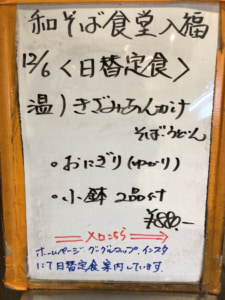 和そば食堂入福
12/6〈日替定食〉
温)きざみあんかけ
そば・うどん
・おにぎり(ゆかり)
・小鉢 2品付
¥880-
メロこちら
ホームページ グーグルマップ、インスタ
にて日替定食案内しています。